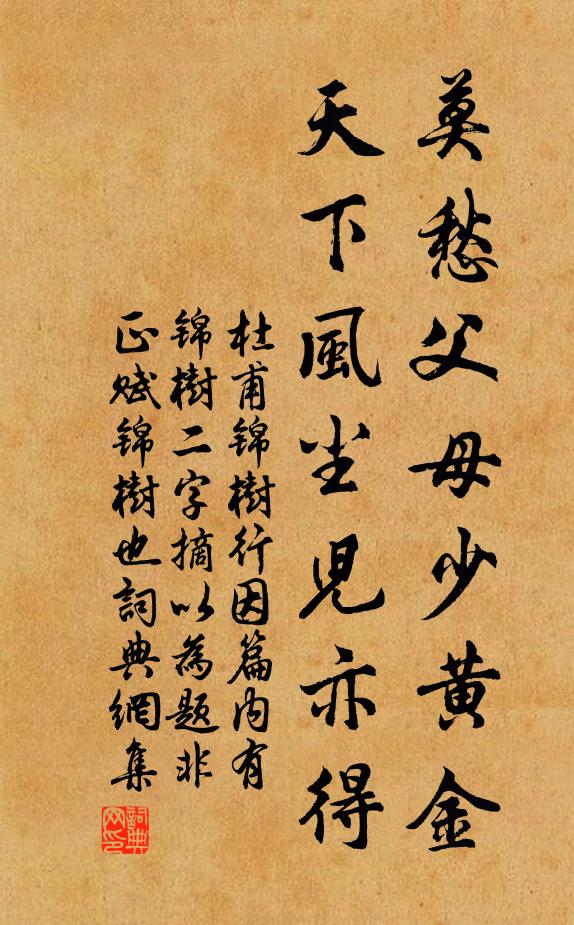 莫愁父母少黄金
天下風塵児亦得
杜甫錦樹行因篇内有
錦樹二字摘以為題非
正賦錦樹也詞典網集
詞典网印